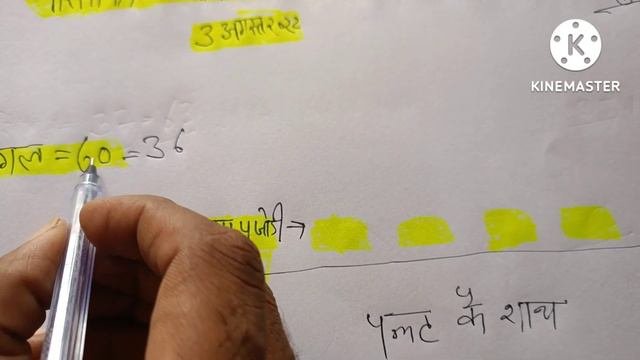 3 अगस्त २२
K
KINEMASTER
गल = 60 = 36
जोडी →
पलट के साथ